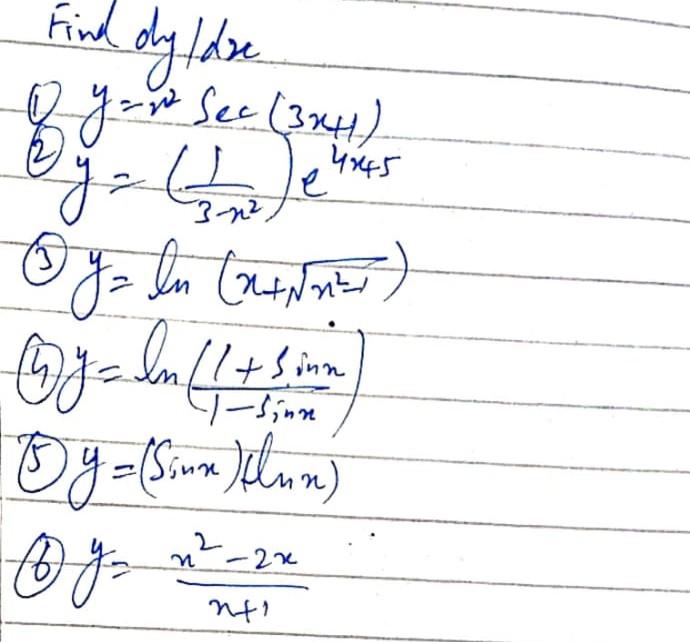 Find dy/dx
① y = x² Sec (3x+1)
② y = (1/(3-x²)) e^(4x+5)
③ y = ln (x+√(x²-1))
④ y = ln ((1+Sinx)/(1-Sinx))
⑤ y = (Sinx)(lnx)
⑥ y = (x²-2x)/(x+1)